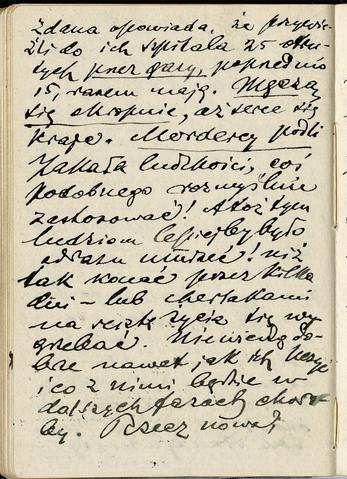 Zdana opowiada, że przywieź-
źli do ich szpitala 25 otru-
tych przez gazy, poprzednio
15, razem mają. Męczą
się okropnie, aż serce się
kraje. Mordercy podli
Zakała ludzkości, coś
podobnego rozmyślnie
zastosować! A toż tym
ludziom lepiej by było
odrazu umierać! niż
tak konać przez kilka
dni – lub cherlakami
na resztę życia się wy
grzebać. Nie wiedzą do-
brze nawet jak ich leczyć
i co z nimi będzie w
dalszych fazach choro-
by. Rzecz nowa,